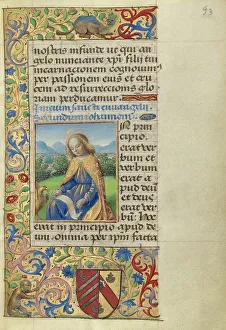 93
nostris infunde ut qui an
gelo nunciante xpi filii tui
incarnationem cognouim
per passionem eius et cruce
em ad resurrectionis glo
riam perducamur.
Initium sancti euuangelii
secundum iohannem
N prin
cipio
erat ver
bum et
verbum
erat a
pud deū
et deus
erat ver
bum. Hoc
erat in principio apud de
um. Omnia per ipm facta